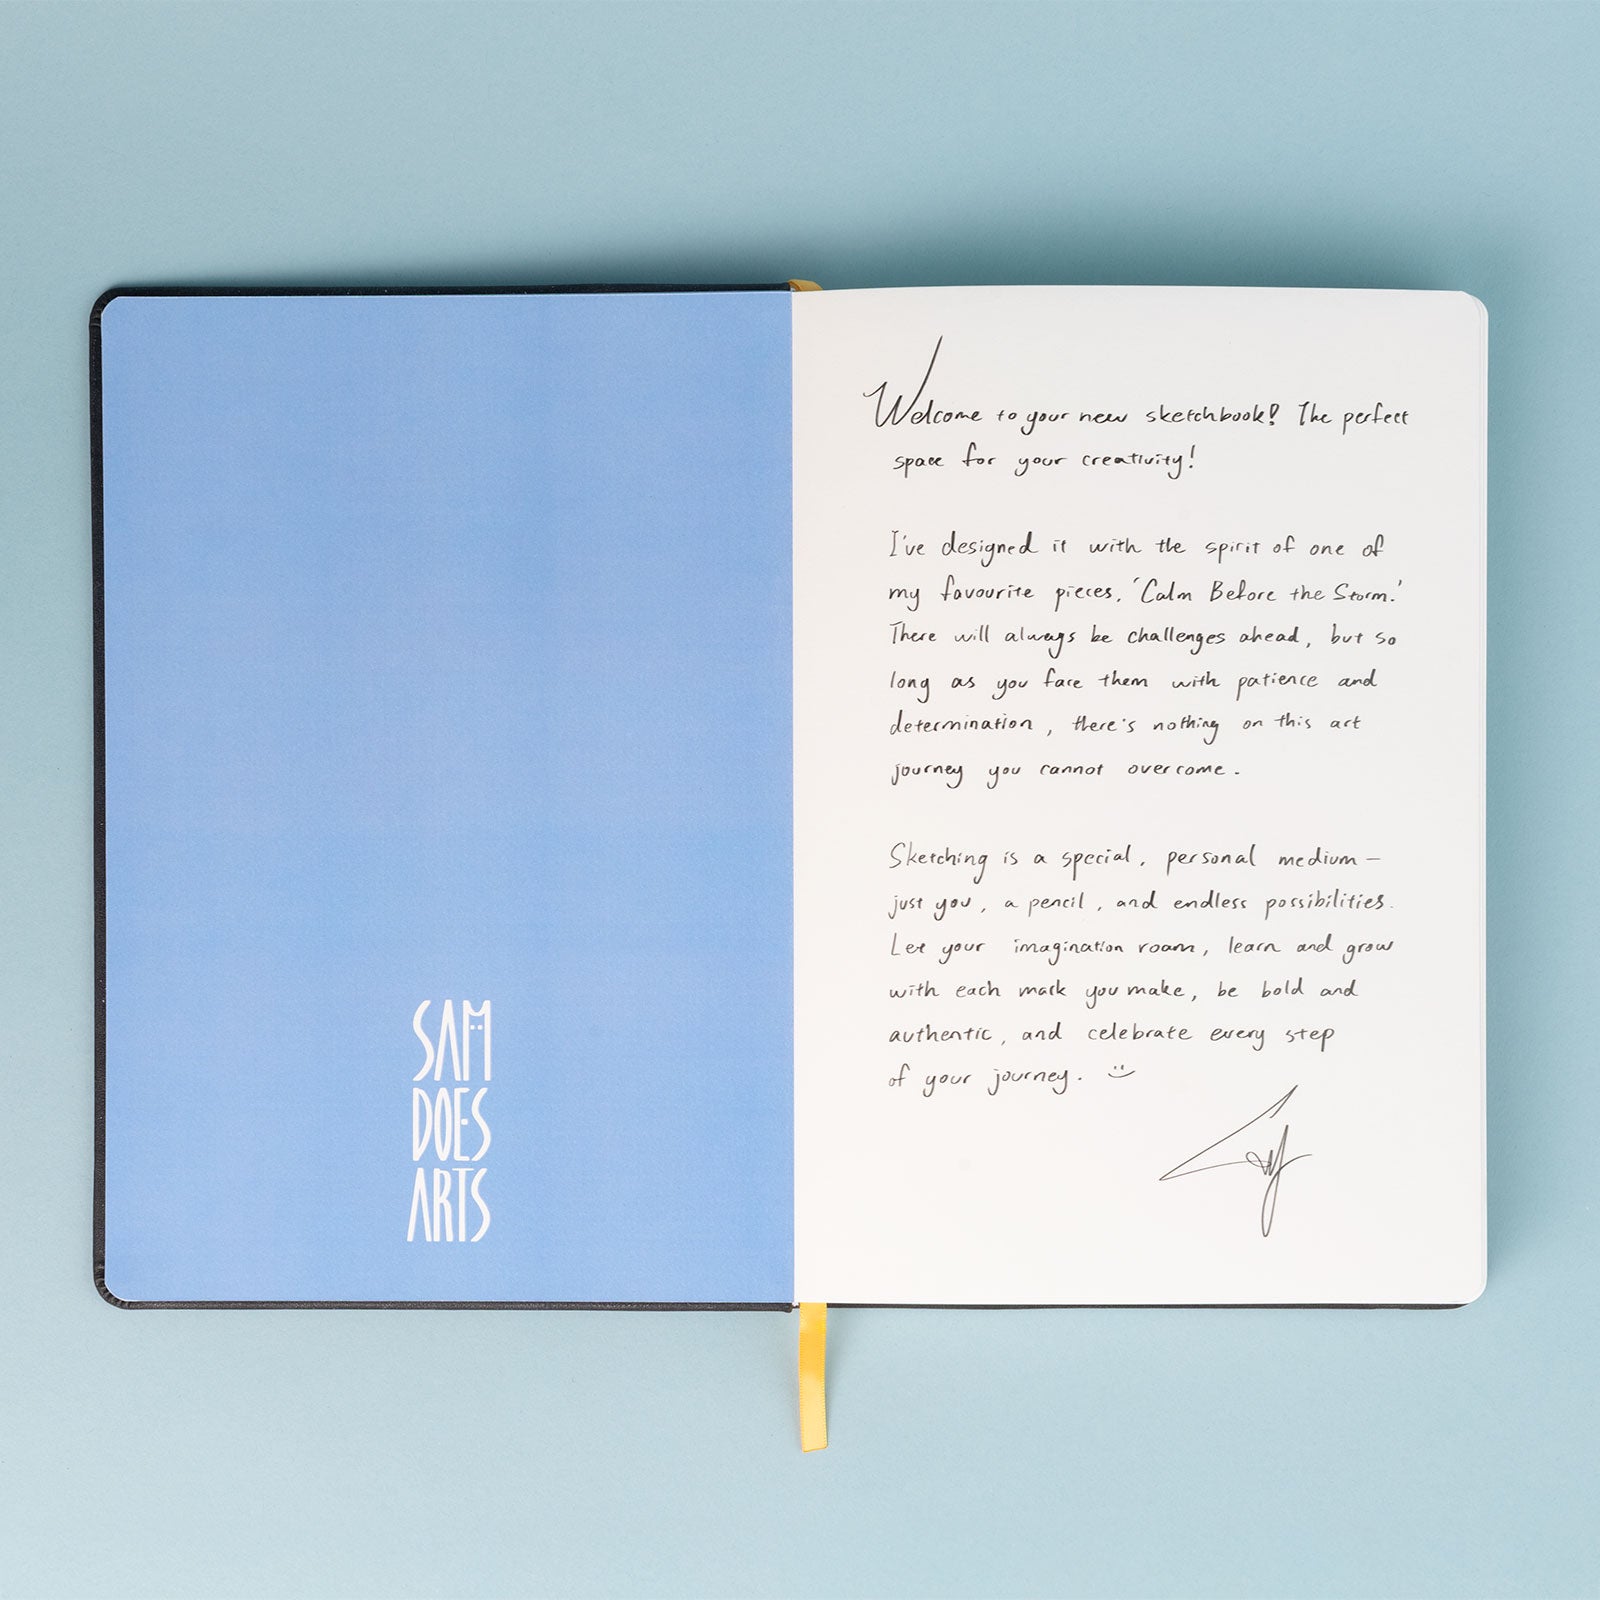 SAM
DOES
ARTS
Welcome to your new sketchbook! The perfect
space for your creativity!
I've designed it with the spirit of one of
my favourite pieces, 'Calm Before the Storm.'
There will always be challenges ahead, but so
long as you face them with patience and
determination, there's nothing on this art
journey you cannot overcome.
Sketching is a special, personal medium—
just you, a pencil, and endless possibilities.
Let your imagination roam, learn and grow
with each mark you make, be bold and
authentic, and celebrate every step
of your journey. :)